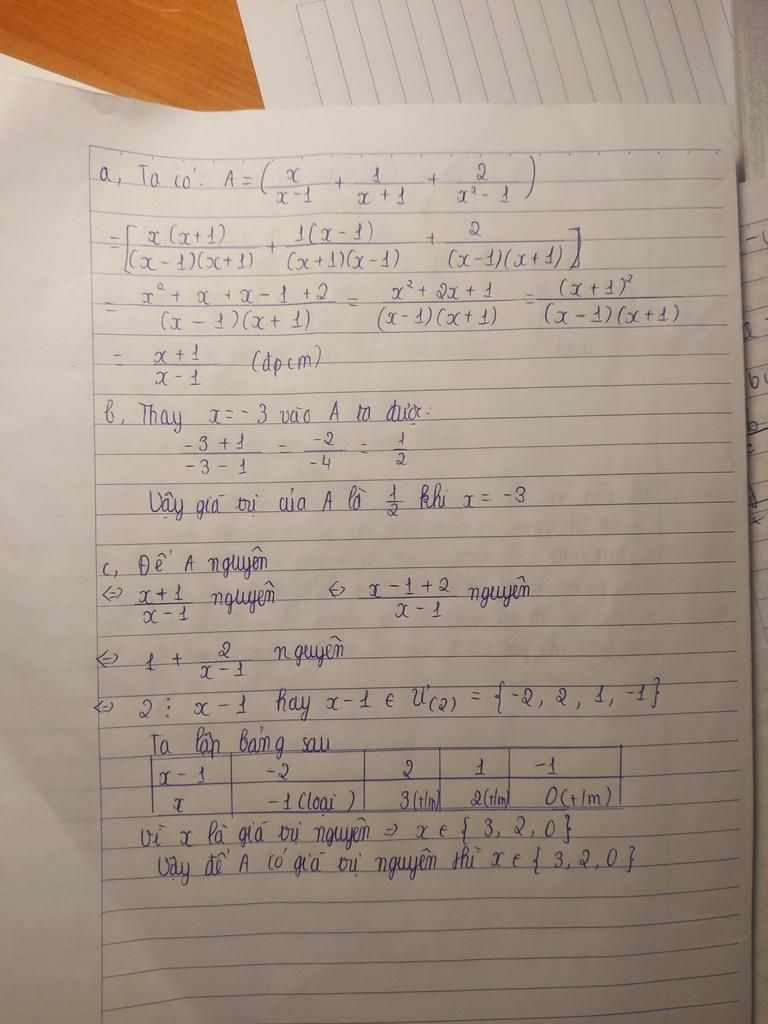 a, Ta có: A = ( x/(x-1) + 1/(x+1) + 2/(x²-1) )
= [ x(x+1)/((x-1)(x+1)) + 1(x-1)/((x+1)(x-1)) + 2/((x-1)(x+1)) ]
= (x² + x + x - 1 + 2)/((x-1)(x+1)) = (x² + 2x + 1)/((x-1)(x+1)) = (x+1)²/((x-1)(x+1))
= (x+1)/(x-1) (đpcm)
b, Thay x = -3 vào A ta được:
(-3+1)/(-3-1) = -2/-4 = 1/2
Vậy giá trị của A là 1/2 khi x = -3
c, Để A nguyên
⇔ (x+1)/(x-1) nguyên ⇔ (x-1+2)/(x-1) nguyên
⇔ 1 + 2/(x-1) nguyên
⇔ 2 ⋮ x-1 hay x-1 ∈ Ư(2) = {-2, 2, 1, -1}
Ta lập bảng sau
x-1 | -2 | 2 | 1 | -1
x | -1 (loại) | 3 (t/m) | 2 (t/m) | 0 (t/m)
Vì x là giá trị nguyên ⇒ x ∈ { 3, 2, 0 }
Vậy để A có giá trị nguyên thì x ∈ { 3, 2, 0 }